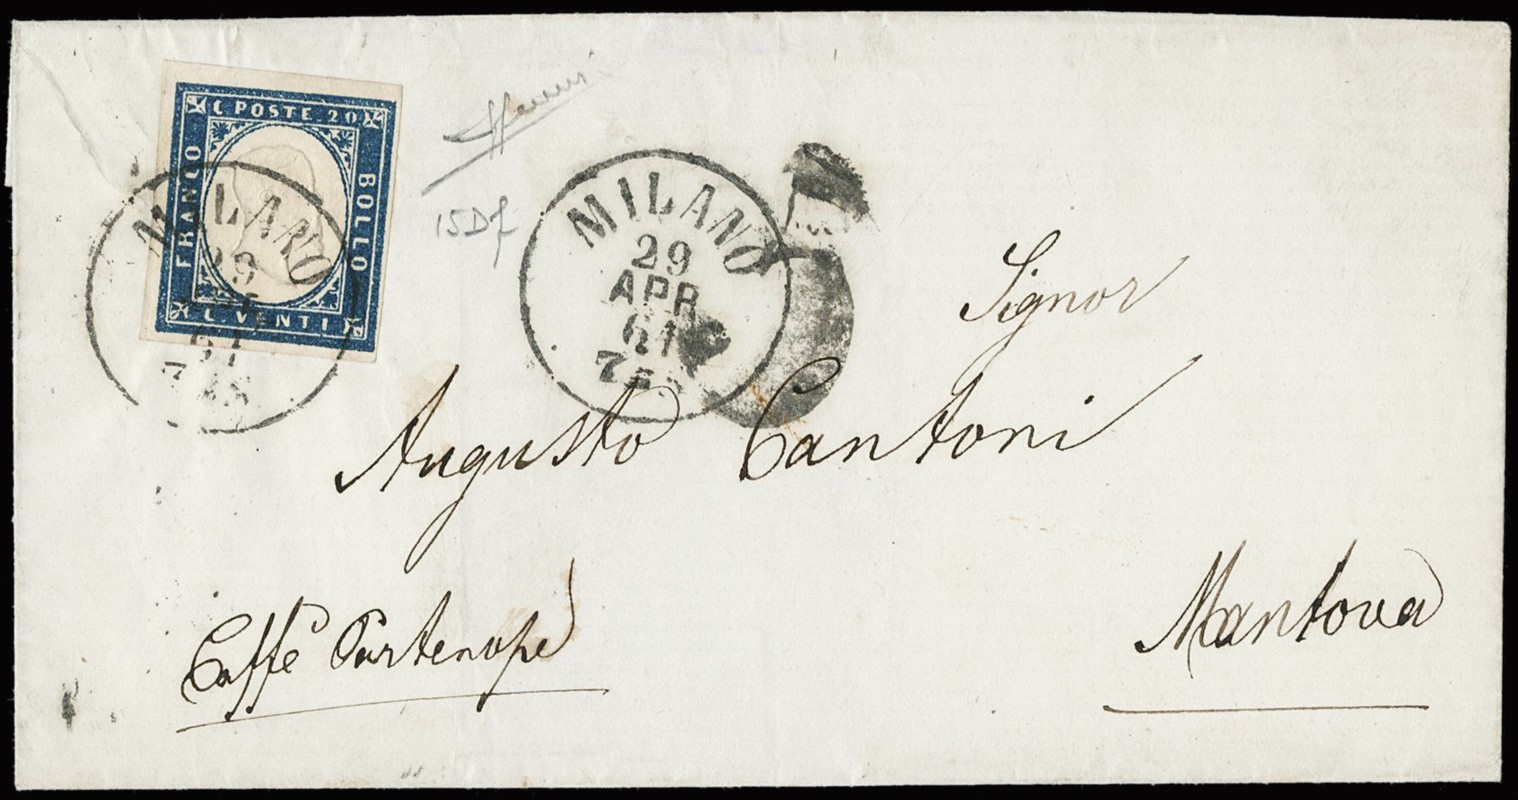 C POSTE 20
FRANCO
BOLLO
C. VENTI
MILANO
29
61
15Df
MILANO
29
APR
61
Signor
Augusto Cantoni
Caffè Partenope
Mantova